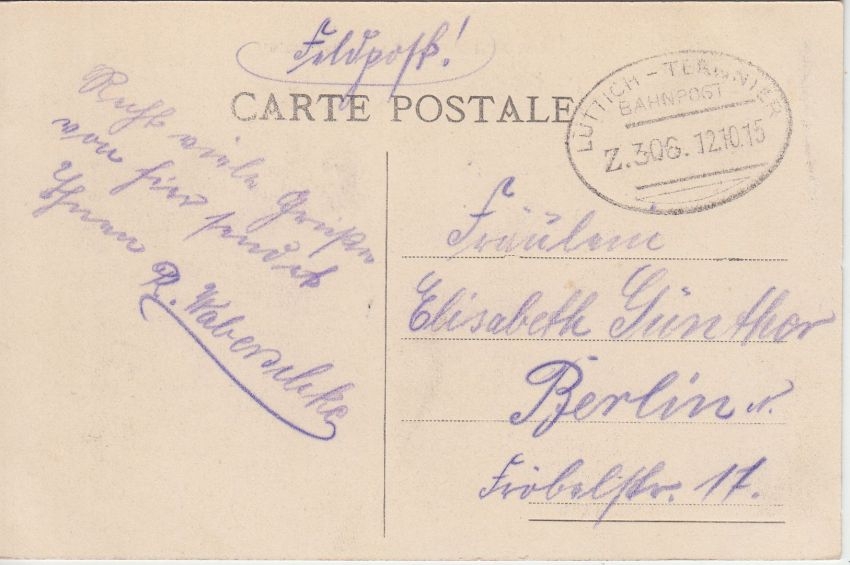 Feldpost!
CARTE POSTALE
LÜTTICH - TERGNIER
BAHNPOST
Z.306. 12.10.15
Recht viele Grüße
von hier sendet
Ihnen
R.
Fräulein
Elisabeth Günther
Berlin N.
Fröbelstr. 17.